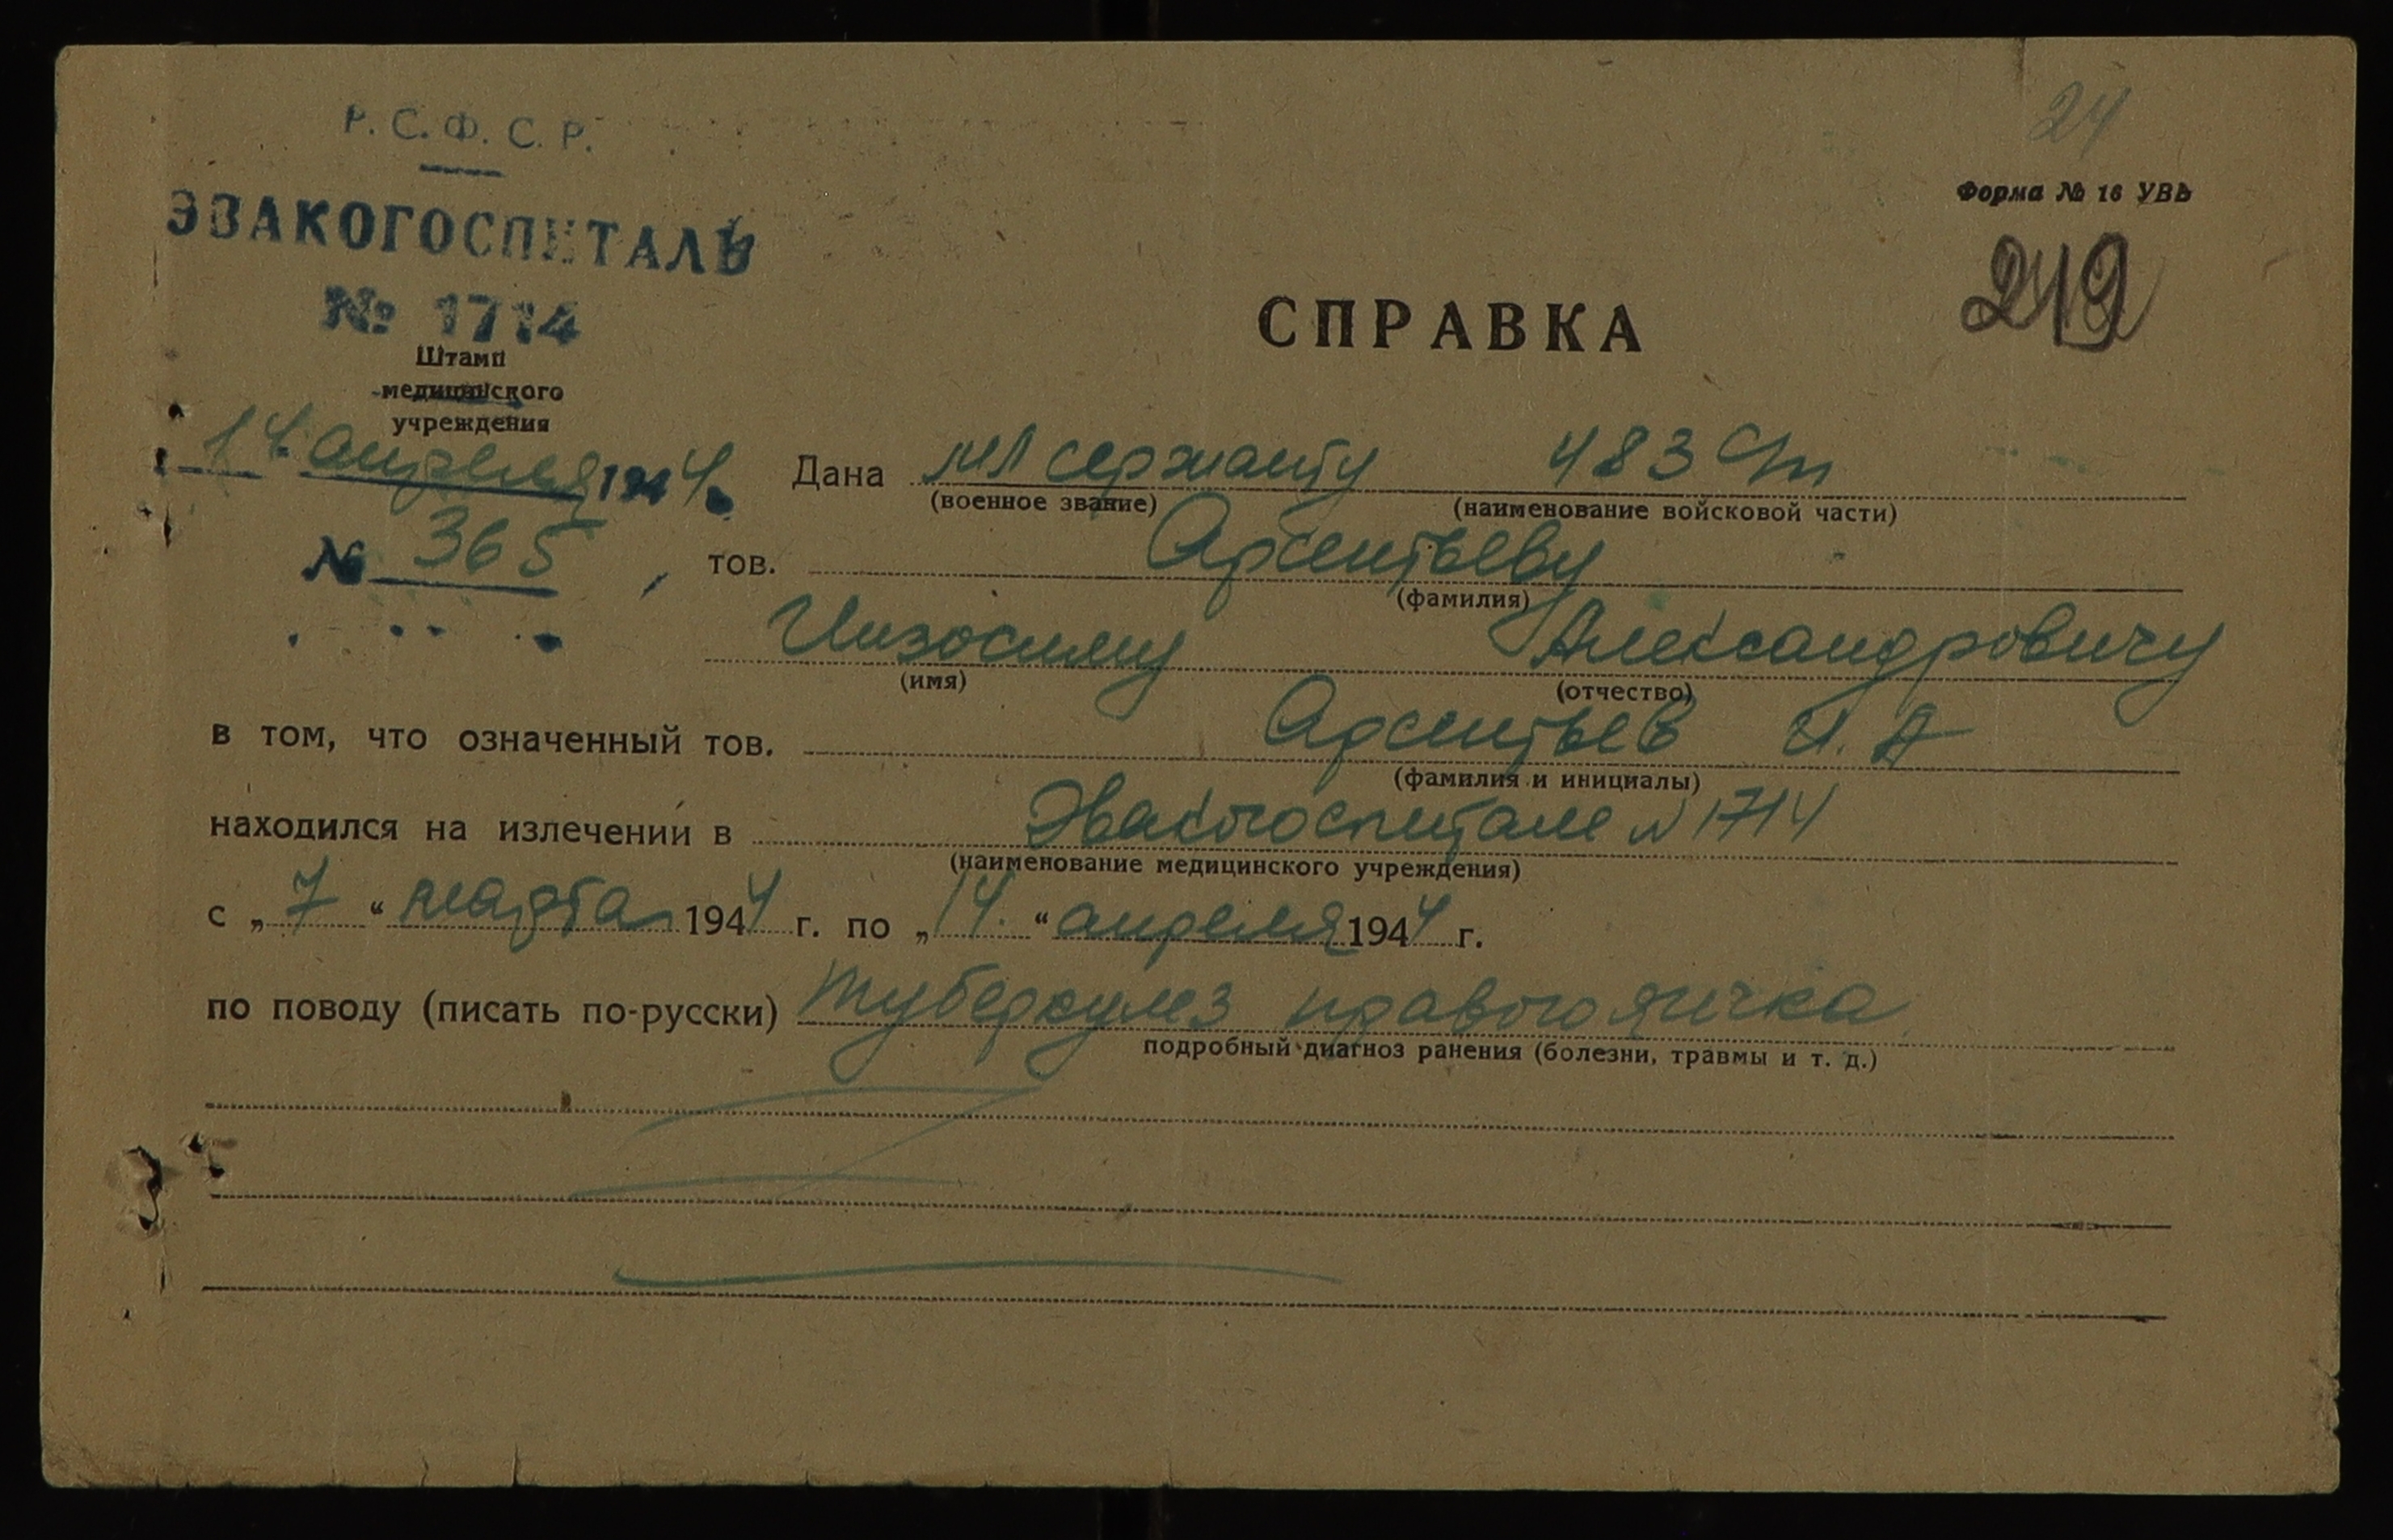 Р. С. Ф. С. Р.
24
Форма № 16 УВВ
ЭВАКОГОСПИТАЛЬ
№ 1714
219
СПРАВКА
Штамп
медицинского
учреждения
14 апреля 1944
Дана мл сержанту 483 Сп
(военное звание) (наименование войсковой части)
№ 365
тов. Арсентьеву
(фамилия)
Изосиму Александровичу
(имя) (отчество)
в том, что означенный тов. Арсентьев И. А
(фамилия и инициалы)
находился на излечении в Эвакогоспитале N 1714
(наименование медицинского учреждения)
с „7“ марта 1944 г. по „14.“ апреля 1944 г.
по поводу (писать по-русски) туберкулез правого яичка
подробный диагноз ранения (болезни, травмы и т. д.)